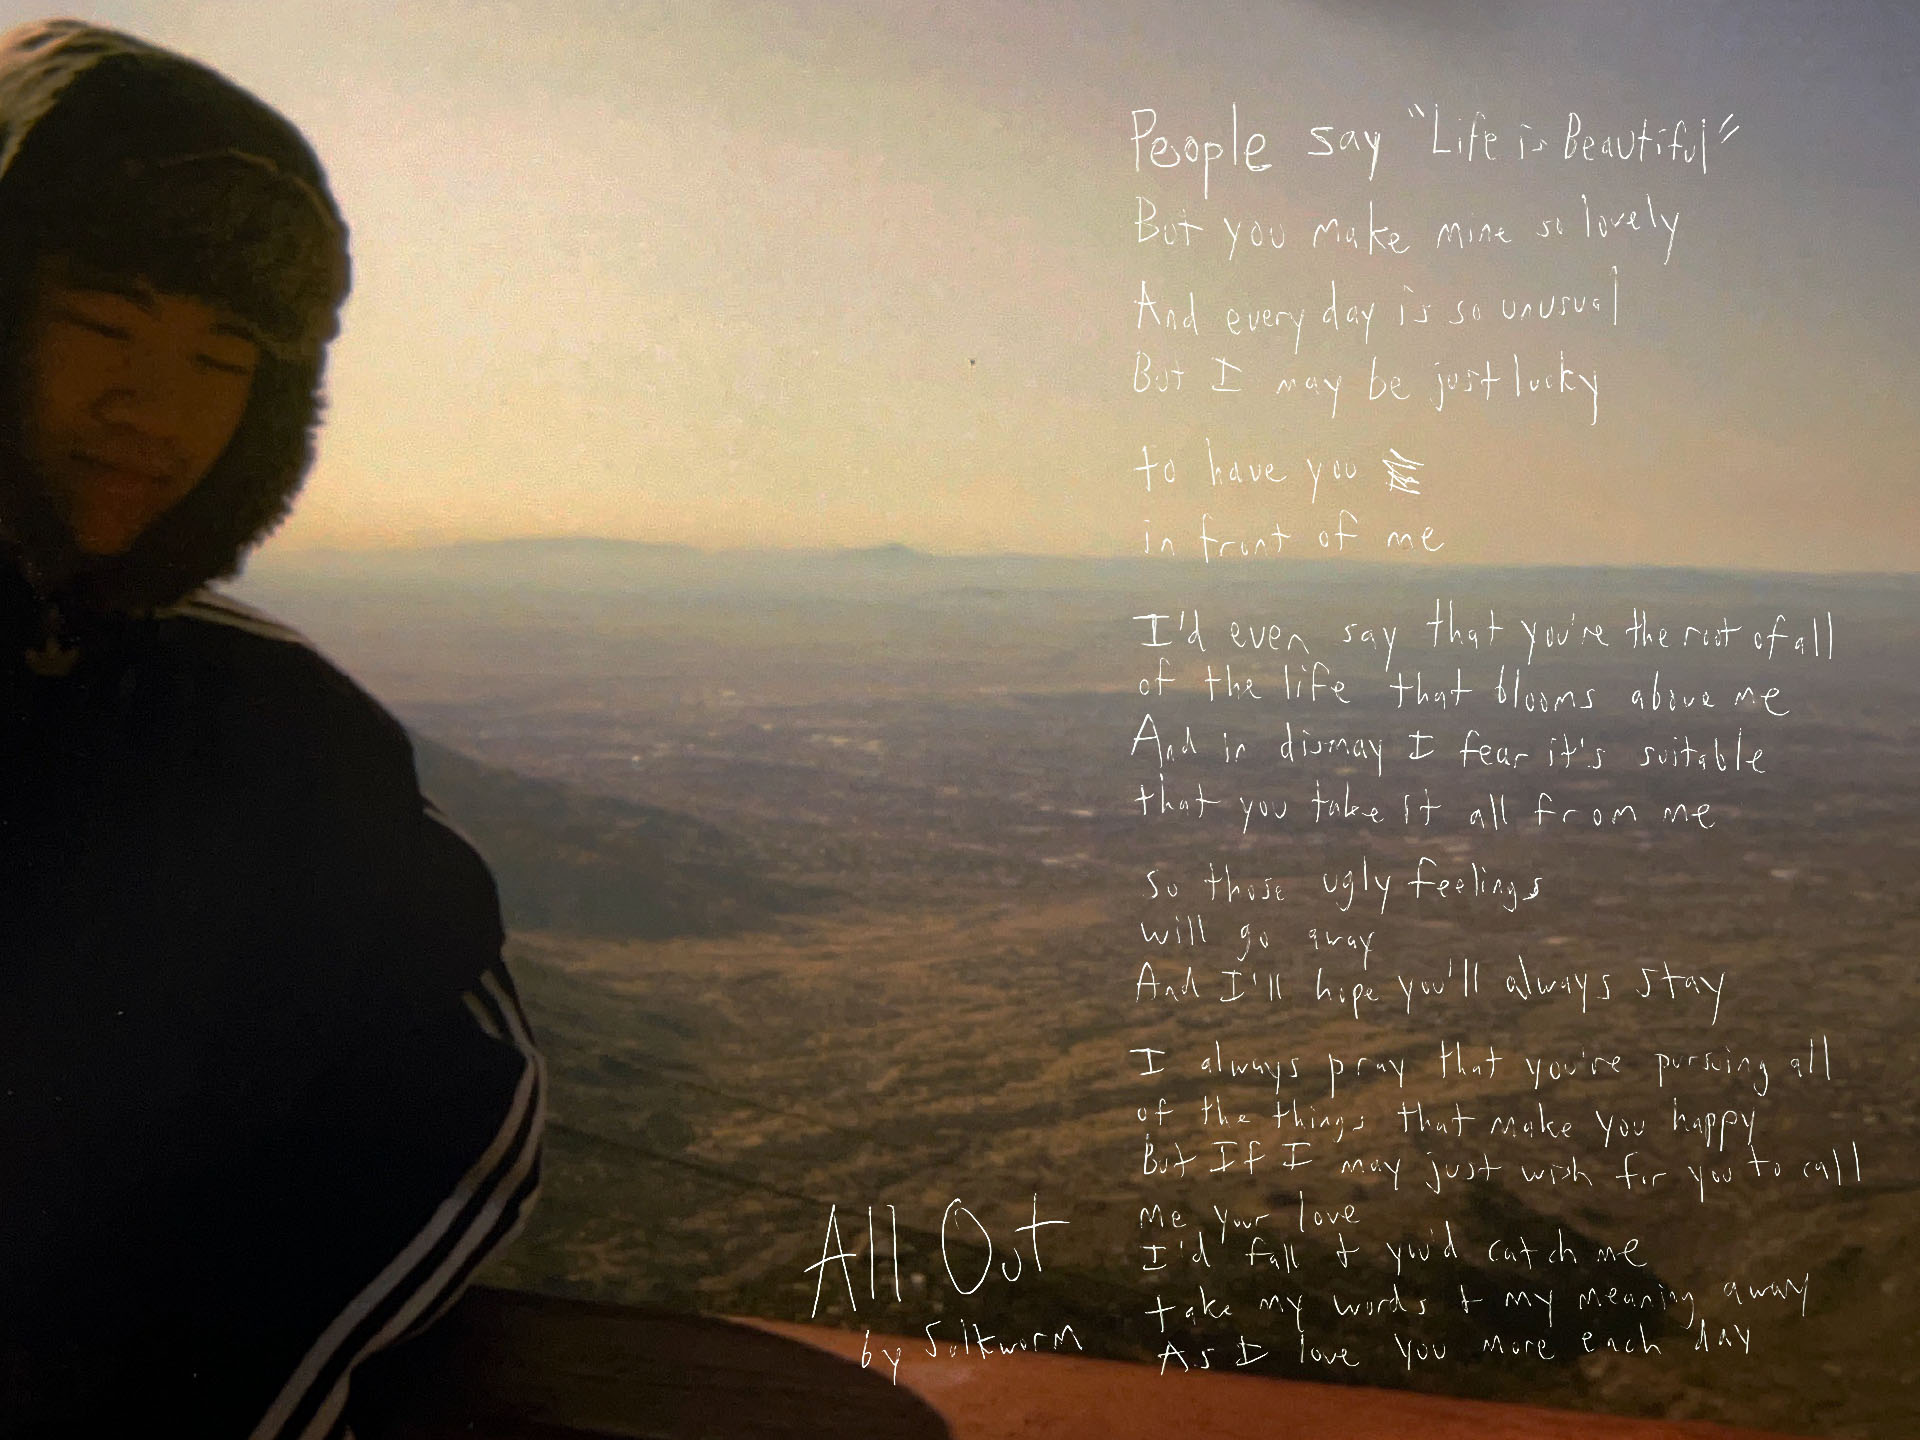 People say "Life is Beautiful"
But you make mine so lovely
And every day is so unusual
But I may be just lucky
to have you
in front of me
I'd even say that you're the root of all
of the life that blooms above me
And in dismay I fear it's suitable
that you take it all from me
so those ugly feelings
will go away
And I'll hope you'll always stay
I always pray that you're pursuing all
of the things that make you happy
But If I may just wish for you to call
me your love
I'd fall + you'd catch me
take my words + my meaning away
As I love you more each day
All Out
by Saltworm